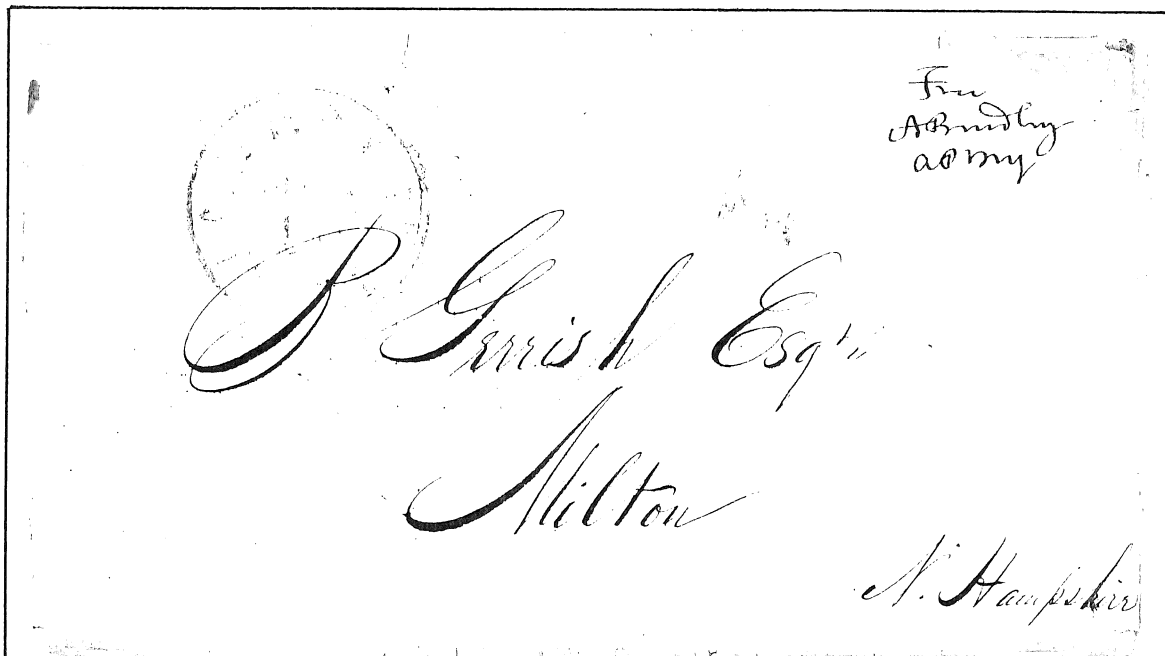 Free
ABradley
aPMg
B Gerrish Esqr
Milton
N. Hampshire